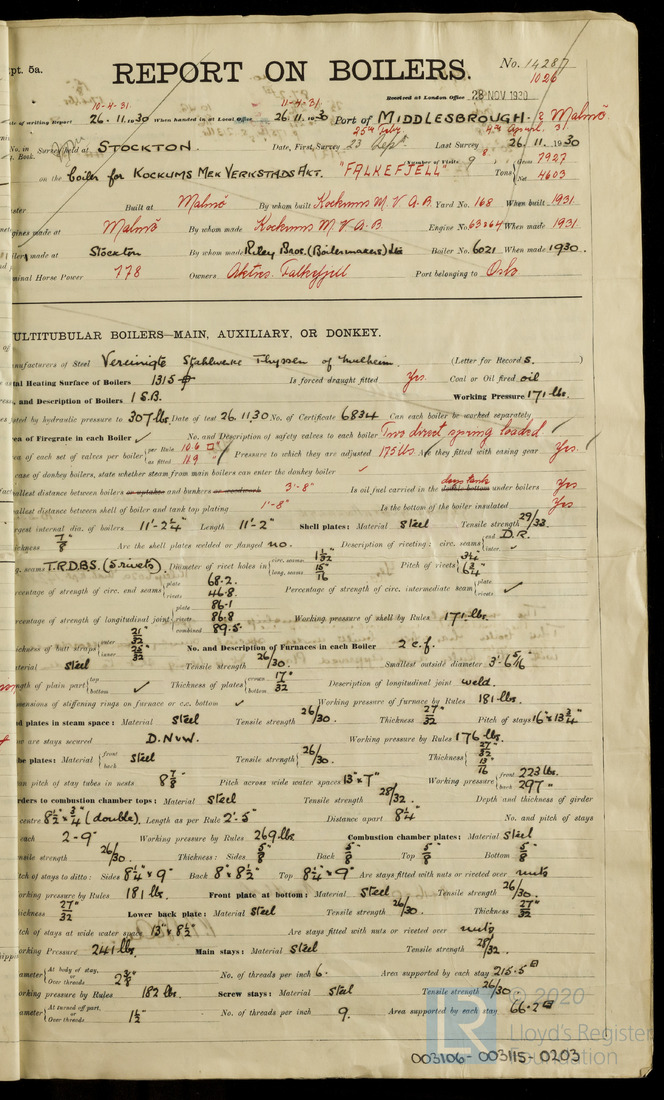 pt. 5a.
REPORT ON BOILERS.
No. 14287
1026
Received at London Office 28 NOV 1930
10-4-31 11-4-31
te of writing Report 26.11.1930 When handed in at Local Office 26.11.1930 Port of MIDDLESBROUGH. & Malmö
25th Feby 4th April. 31
No. in Survey held at STOCKTON. Date, First Survey 23 Sept Last Survey 26.11.1930
Book.
on the boiler for KOCKUMS MEK VERKSTADS AKT. "FALKEFJELL" Number of Visits 9 Tons Gross 7927
Net 4603
ster Built at Malmö By whom built Kockums M. V. A. B. Yard No. 168 When built 1931
gines made at Malmö By whom made Kockums M. V. A. B. Engine No. 63264 When made 1931
ilers made at Stockton By whom made Riley Bros. (Boilermakers) Ltd Boiler No. 6021 When made 1930.
minal Horse Power 778 Owners Akties. Falkefjell Port belonging to Oslo
ULTITUBULAR BOILERS—MAIN, AUXILIARY, OR DONKEY.
anufacturers of Steel Vereinigte Stahlwerke Thyssen of Mulheim. (Letter for Record S. )
tal Heating Surface of Boilers 1315 Is forced draught fitted Yes. Coal or Oil fired oil
and Description of Boilers 1 S.B. Working Pressure 171 lbs.
ted by hydraulic pressure to 307 lbs. Date of test 26.11.30 No. of Certificate 6834 Can each boiler be worked separately
ea of Firegrate in each Boiler No. and Description of safety valves to each boiler Two direct spring loaded
ea of each set of valves per boiler per Rule 10.6
as fitted 11.9 Pressure to which they are adjusted 175 lbs. Are they fitted with easing gear Yes.
case of donkey boilers, state whether steam from main boilers can enter the donkey boiler
allest distance between boilers or uptakes and bunkers or woodwork 3'-8" Is oil fuel carried in the double bottom under boilers Yes
allest distance between shell of boiler and tank top plating 1'-8" Is the bottom of the boiler insulated Yes
rgest internal dia. of boilers 11'-2 1/4" Length 11'-2" Shell plates: Material Steel Tensile strength 29/33.
ickness 7/8" Are the shell plates welded or flanged no. Description of riveting: circ. seams end D.R.
inter.
g. seams T.R.D.B.S. (5 rivets). Diameter of rivet holes in circ. seams 1 1/32
long. seams 15/16 Pitch of rivets 3 1/4
6 3/4
rcentage of strength of circ. end seams plate 68.2.
rivets 46.8 Percentage of strength of circ. intermediate seam plate
rivets
rcentage of strength of longitudinal joint: plate 86.1
rivets 86.8
combined 89.5. Working pressure of shell by Rules 171 lbs.
ickness of butt straps outer 21/32
inner 25/32 No. and Description of Furnaces in each Boiler 2 c.f.
terial Steel Tensile strength 26/30. Smallest outside diameter 3'-6 5/16"
gth of plain part top
bottom Thickness of plates crown 17"
bottom 32 Description of longitudinal joint weld.
mensions of stiffening rings on furnace or c.c. bottom Working pressure of furnace by Rules 181 lbs.
d plates in steam space: Material Steel Tensile strength 26/30. Thickness 27"/32 Pitch of stays 16" x 13 3/4"
w are stays secured D.N&W. Working pressure by Rules 176 lbs.
be plates: Material front
back Steel Tensile strength 26/30. Thickness 27"/32
13"/16
an pitch of stay tubes in nests 8 7/8 Pitch across wide water spaces 13" x 7" Working pressure front 223 lbs.
back 297 "
rders to combustion chamber tops: Material Steel Tensile strength 28/32. Depth and thickness of girder
centre 8 1/2" x 3/4" (double). Length as per Rule 2'-5" Distance apart 8 1/4" No. and pitch of stays
each 2-9" Working pressure by Rules 269 lbs Combustion chamber plates: Material Steel
nsile strength 26/30. Thickness: Sides 5"/8 Back 5"/8 Top 5"/8 Bottom 5"/8
tch of stays to ditto: Sides 8 1/4" x 9" Back 8" x 8 1/2" Top 8 1/4" x 9" Are stays fitted with nuts or riveted over nuts
orking pressure by Rules 181 lbs. Front plate at bottom: Material Steel Tensile strength 26/30.
ickness 27"/32 Lower back plate: Material Steel Tensile strength 26/30. Thickness 27"/32
tch of stays at wide water space 13" x 8 1/2" Are stays fitted with nuts or riveted over nuts
orking Pressure 241 lbs. Main stays: Material Steel Tensile strength 28/32.
ameter At body of stay,
or
Over threads 2 3/8" No. of threads per inch 6. Area supported by each stay 215.5
orking pressure by Rules 182 lbs. Screw stays: Material Steel Tensile strength 26/30
ameter At turned off part,
or
Over threads 1 1/2" No. of threads per inch 9. Area supported by each stay 66.2
LR © 2020
Lloyd's Register
Foundation
003106-003115-0203